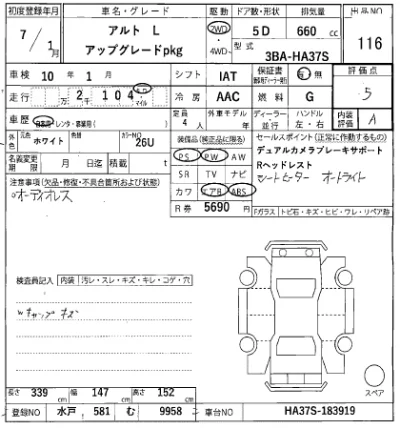 初度登録年月 車名・グレード 駆動 ドア数・形状 排気量 出品NO
7/1月 アルト L 2WD・4WD 5D 660 cc 116
アップグレードpkg 型式 3BA-HA37S
車検 10年1月 シフト IAT 保証書 有 無 評価点
走行 2,104 km マイル 冷房 AAC 燃料 G 5
車歴 自家用・レンタ・事業用( ) 定員 4人 外車モデル年 ディーラー・並行 ハンドル 左・右 内装評価 A
外色 元色 ホワイト カラーNO 26U 装備品(純正品に限る) セールスポイント(正常に作動するもの)
名義変更期限 月 日迄 積載 t PS PW AW デュアルカメラブレーキサポート
注意事項(欠品・修復・不具合箇所および状態) SR TV ナビ Rヘッドレスト
オーディオレス カワ エアB ABS シートヒーター オートライト
R券 5690円 Fガラス トビ石・キズ・ヒビ・ワレ・リペア跡
検査員記入 内装 汚レ・スレ・キズ・キレ・コゲ・穴
Wキャップ キズ
スペア
長さ 339 cm 幅 147 cm 高さ 152 cm
登録NO 水戸 581 む 9958 車台NO HA37S-183919